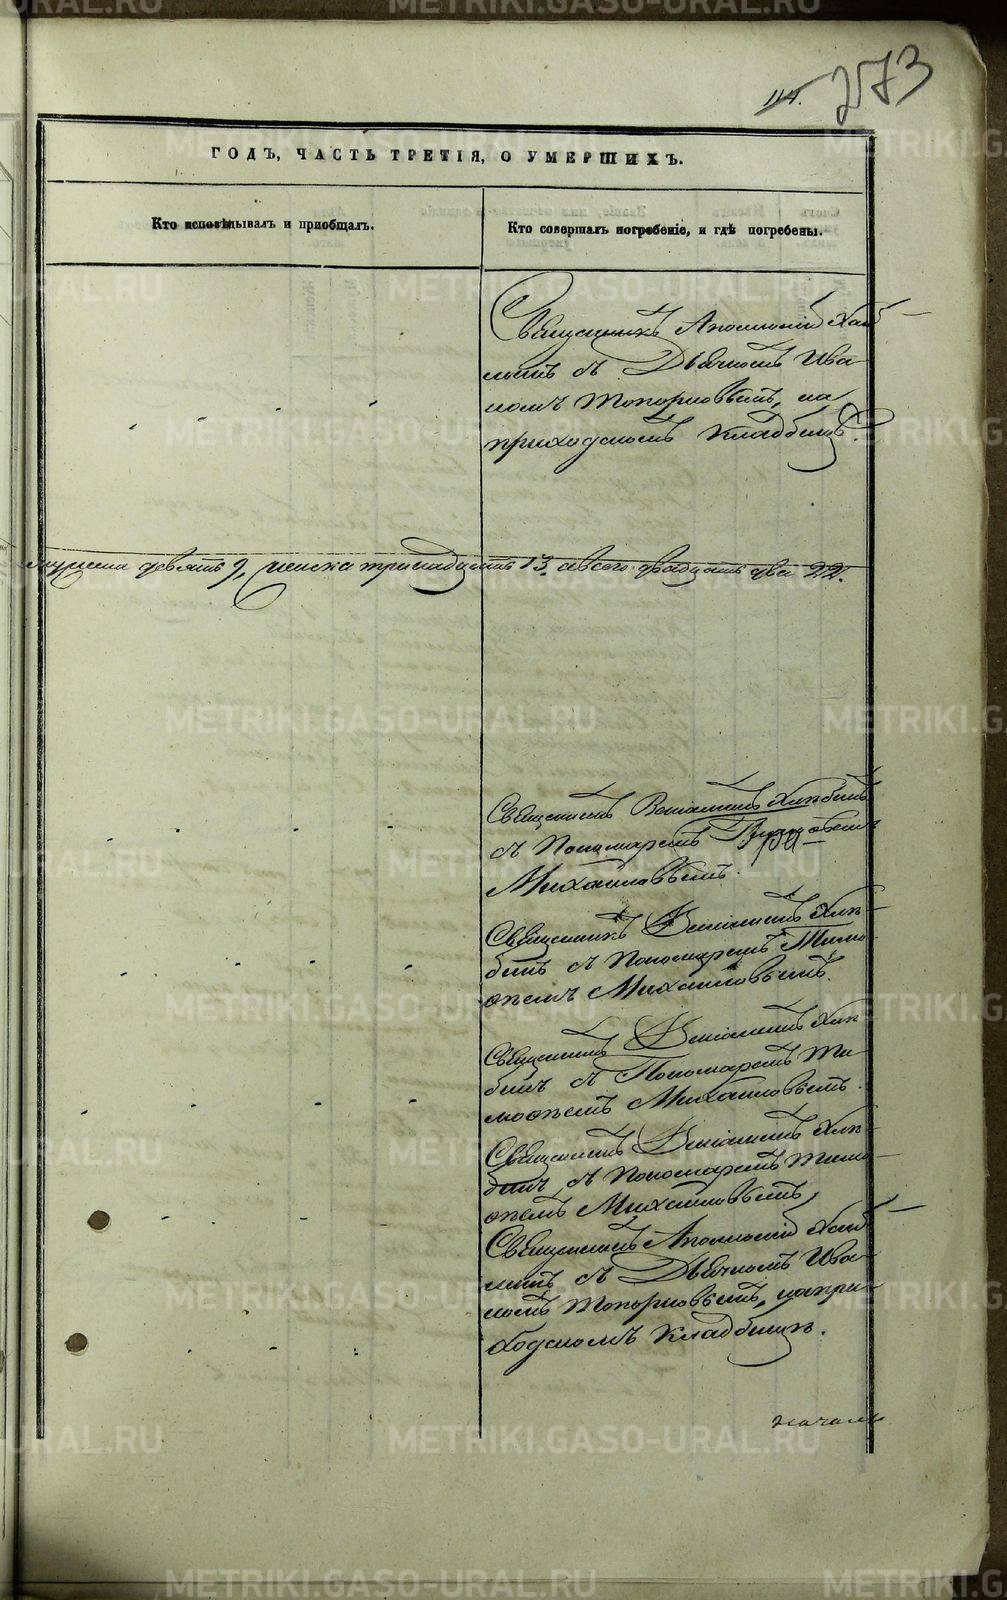 114.
273
ГОДЪ, ЧАСТЬ ТРЕТІЯ, О УМЕРШИХЪ.
Кто исповѣдывалъ и приобщалъ.
Кто совершалъ погребеніе, и гдѣ погребены.
Священникъ Аполлоній
съ Дьячкомъ Ива-
номъ Топорковымъ, на
приходскомъ кладбищѣ.
мужеска девять 9, женска тринадцать 13. а всего двадцать два 22.
Священникъ Веніаминъ Хлѣбинъ
съ Пономаремъ
Михайловымъ.
Священникъ Веніаминъ Хлѣ-
бинъ съ Пономаремъ Тимо-
ѳеемъ Михайловымъ.
Священникъ Веніаминъ Хлѣ-
бинъ съ Пономаремъ Ти-
моѳеемъ Михайловымъ.
Священникъ Веніаминъ Хлѣ-
бинъ съ Пономаремъ Тимо-
ѳеемъ Михайловымъ,
Священникъ Аполлоній
съ Дьячкомъ Ива-
номъ Топорковымъ, на при-
ходскомъ кладбищѣ.
METRIKI.GASO-URAL.RU